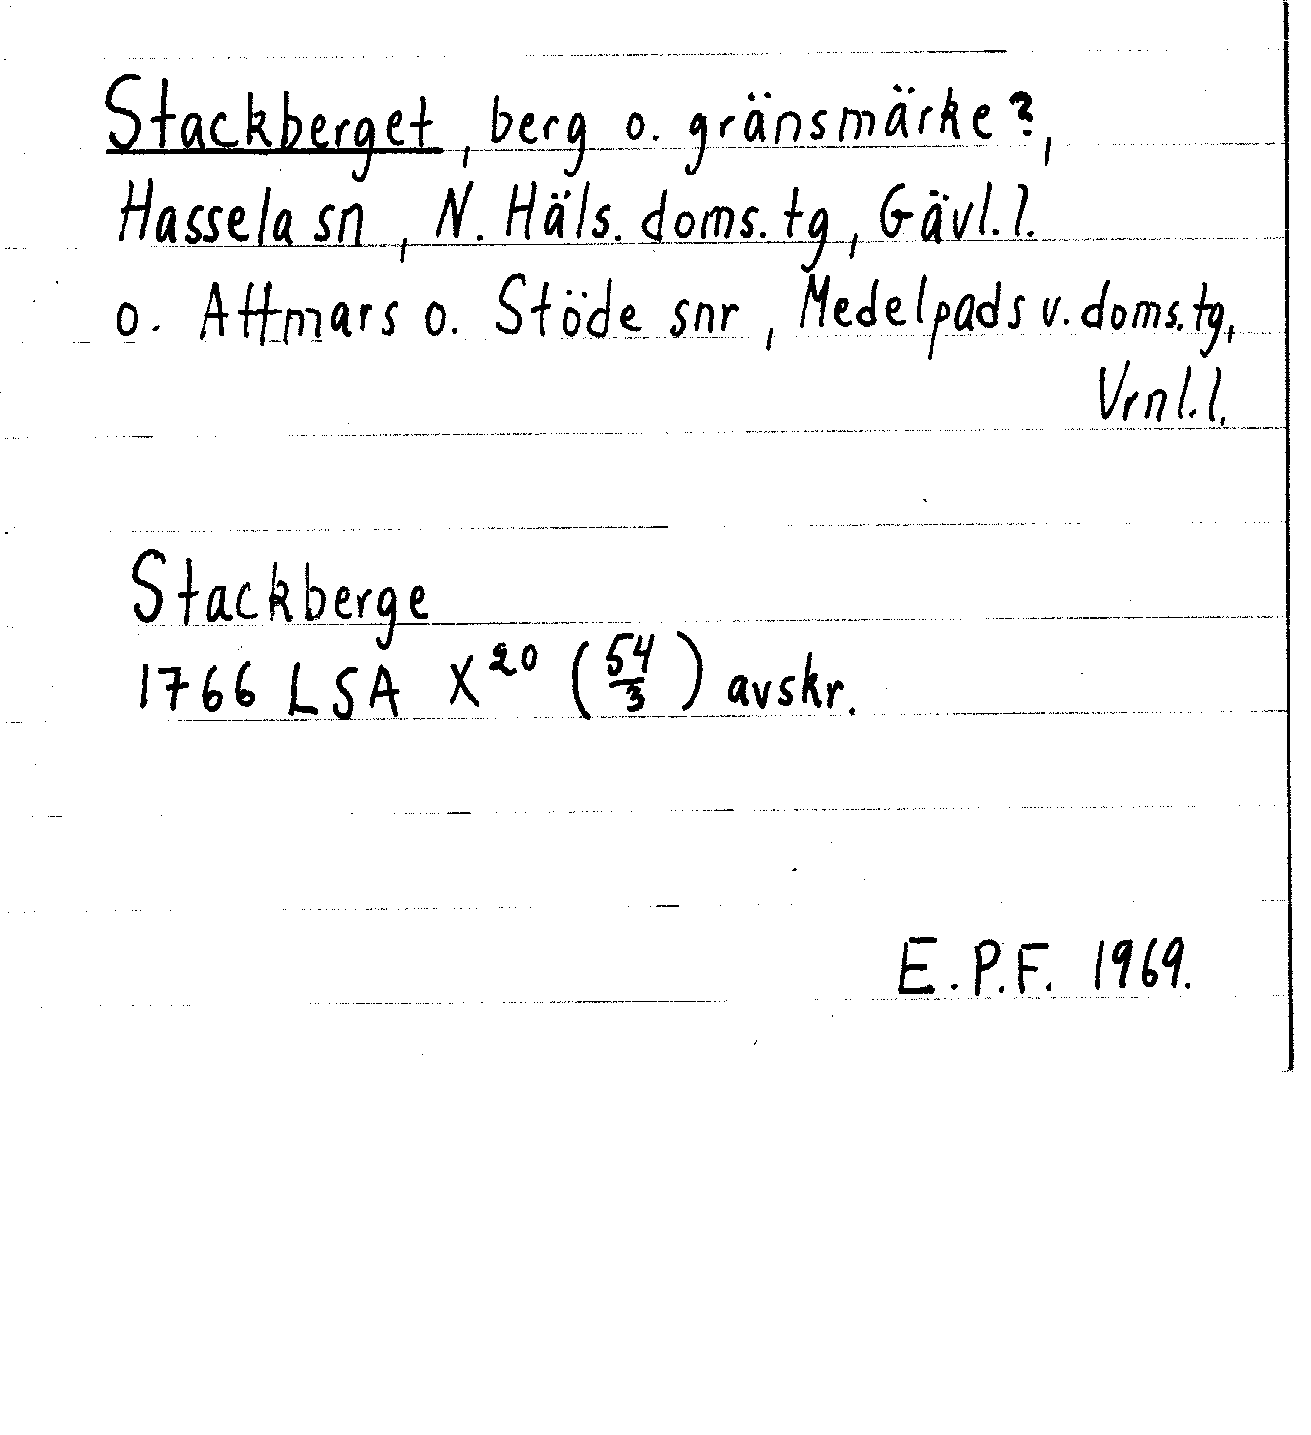 Stackberget, berg o. gränsmärke?,
Hassela sn, N. Häls. doms. tg, Gävl. l.
o. Attmars o. Stöde snr, Medelpads v. doms. tg,
Vrnl. l.
Stackberge
1766 LSA X²⁰ (54/3) avskr.
E.P.F. 1969.